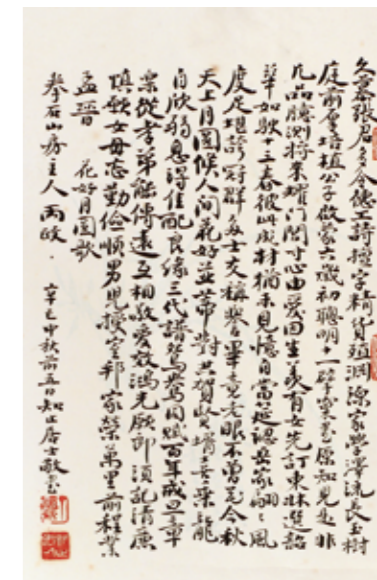 久慕張君多令德工詩擅字精貨殖淵源家學澤流長玉樹
庭前會培植公子啟蒙六歲初聰明十一擘窠書深知見是非
凡品臆測將來耀門閭寸心由愛因生義有女先訂東牀選韶
華如駛十三春彼此成材猶未見憶自當延認岳家翩翩風
度足堪誇冠群多士交稱譽畢竟老眼不曾花今秋
天上月圓候人間花好並蒂對共賀賢婿喜乘龍
自欣弱息得佳配良緣三代譜鴛鴦同賦百年成章
從孝弟能傳遠互相敬愛效鴻光願郎須記清廉
慎女毋忘勤儉順男兒授室邦家榮萬里前程業
孟晉 花好月圓歌
拳石山房主人 兩政
辛巳中秋前五日知止居士敬書